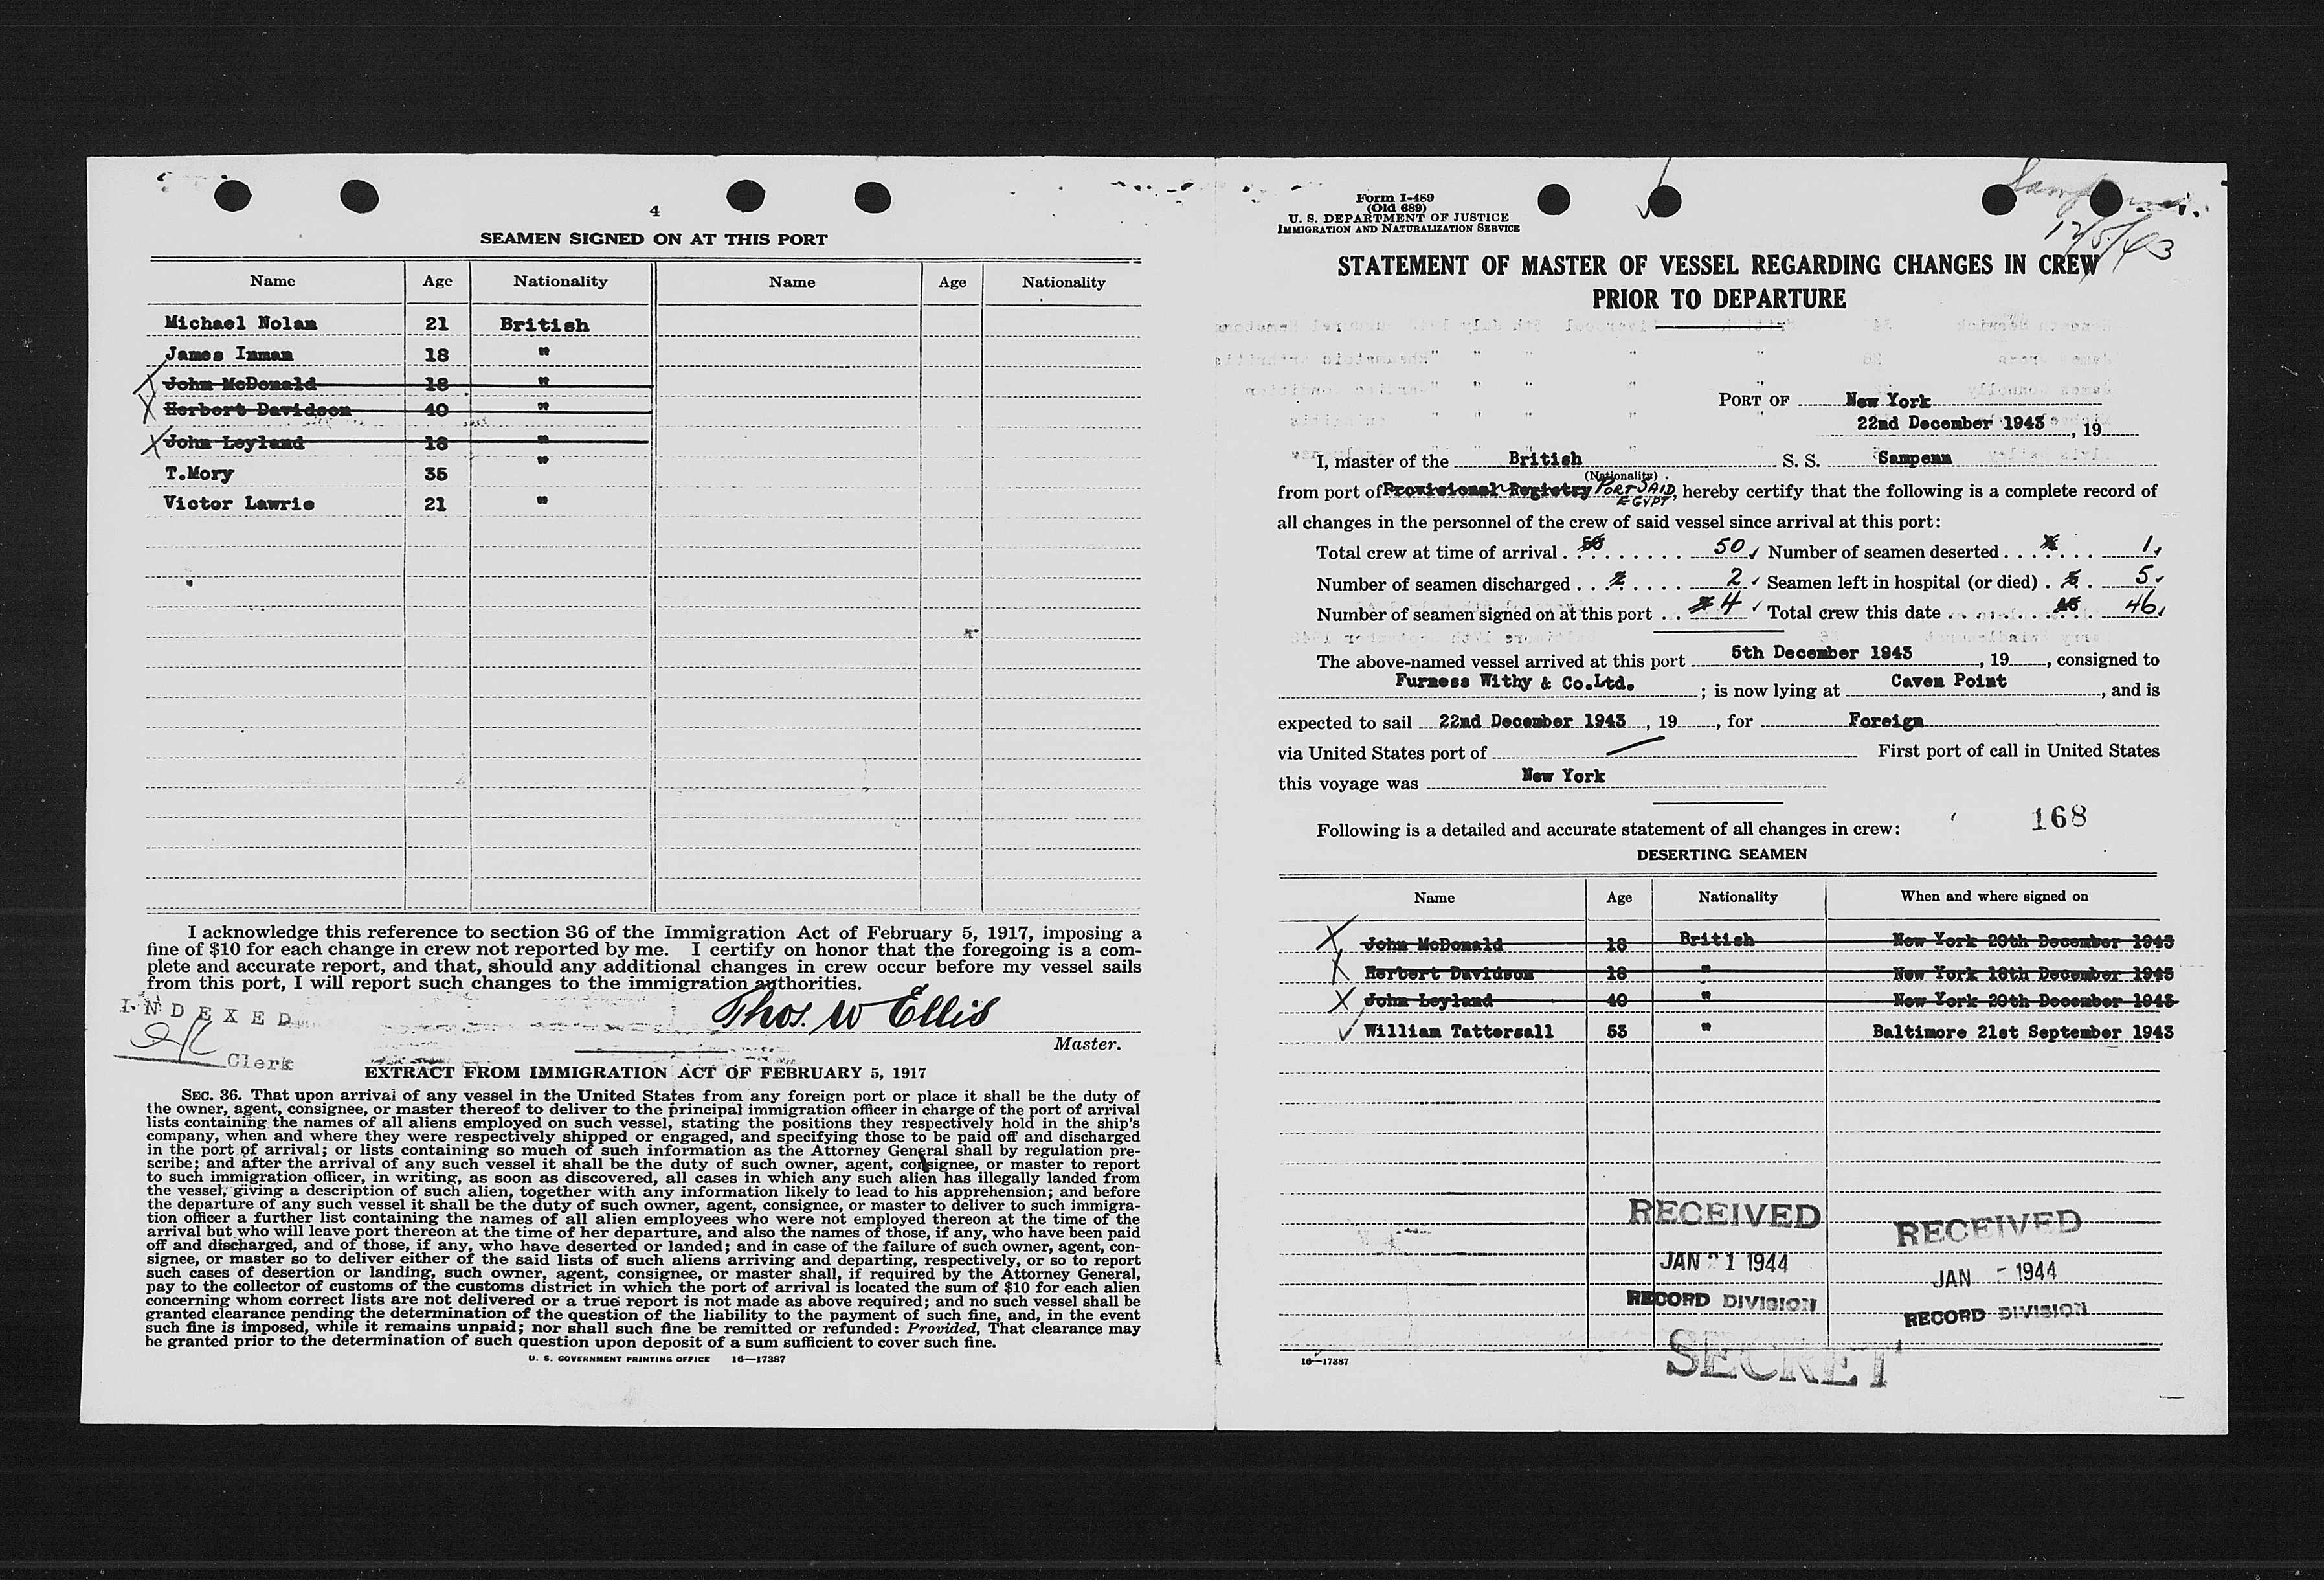 4
SEAMEN SIGNED ON AT THIS PORT
Name Age Nationality Name Age Nationality
Michael Nolan 21 British
James Inman 18 "
John McDonald 18 "
Herbert Davidson 40 "
John Leyland 18 "
T.Mory 35 "
Victor Lawrie 21 "
I acknowledge this reference to section 36 of the Immigration Act of February 5, 1917, imposing a
fine of $10 for each change in crew not reported by me. I certify on honor that the foregoing is a com-
plete and accurate report, and that, should any additional changes in crew occur before my vessel sails
from this port, I will report such changes to the immigration authorities.
INDEXED
Thos. W Ellis
Clerk
Master.
EXTRACT FROM IMMIGRATION ACT OF FEBRUARY 5, 1917
SEC. 36. That upon arrival of any vessel in the United States from any foreign port or place it shall be the duty of
the owner, agent, consignee, or master thereof to deliver to the principal immigration officer in charge of the port of arrival
lists containing the names of all aliens employed on such vessel, stating the positions they respectively hold in the ship's
company, when and where they were respectively shipped or engaged, and specifying those to be paid off and discharged
in the port of arrival; or lists containing so much of such information as the Attorney General shall by regulation pre-
scribe; and after the arrival of any such vessel it shall be the duty of such owner, agent, consignee, or master to report
to such immigration officer, in writing, as soon as discovered, all cases in which any such alien has illegally landed from
the vessel, giving a description of such alien, together with any information likely to lead to his apprehension; and before
the departure of any such vessel it shall be the duty of such owner, agent, consignee, or master to deliver to such immigra-
tion officer a further list containing the names of all alien employees who were not employed thereon at the time of the
arrival but who will leave port thereon at the time of her departure, and also the names of those, if any, who have been paid
off and discharged, and of those, if any, who have deserted or landed; and in case of the failure of such owner, agent, con-
signee, or master so to deliver either of the said lists of such aliens arriving and departing, respectively, or so to report
such cases of desertion or landing, such owner, agent, consignee, or master shall, if required by the Attorney General,
pay to the collector of customs of the customs district in which the port of arrival is located the sum of $10 for each alien
concerning whom correct lists are not delivered or a true report is not made as above required; and no such vessel shall be
granted clearance pending the determination of the question of the liability to the payment of such fine, and, in the event
such fine is imposed, while it remains unpaid; nor shall such fine be remitted or refunded: Provided, That clearance may
be granted prior to the determination of such question upon deposit of a sum sufficient to cover such fine.
U. S. GOVERNMENT PRINTING OFFICE 16—17387
Form I-489
(Old 689)
U. S. DEPARTMENT OF JUSTICE
IMMIGRATION AND NATURALIZATION SERVICE
12/5/43
STATEMENT OF MASTER OF VESSEL REGARDING CHANGES IN CREW
PRIOR TO DEPARTURE
PORT OF New York
22nd December 1943, 19
I, master of the British S. S. Sampenn
(Nationality)
from port of Provisional Registry PORT SAID EGYPT, hereby certify that the following is a complete record of
all changes in the personnel of the crew of said vessel since arrival at this port:
Total crew at time of arrival 50 50 Number of seamen deserted 1
Number of seamen discharged 2 2 Seamen left in hospital (or died) 5 5
Number of seamen signed on at this port 4 Total crew this date 46
The above-named vessel arrived at this port 5th December 1943, 19, consigned to
Furness Withy & Co.Ltd.; is now lying at Caven Point, and is
expected to sail 22nd December 1943, 19, for Foreign
via United States port of First port of call in United States
this voyage was New York
Following is a detailed and accurate statement of all changes in crew: 168
DESERTING SEAMEN
Name Age Nationality When and where signed on
John McDonald 18 British New York 20th December 1943
Herbert Davidson 18 " New York 18th December 1943
John Leyland 40 " New York 20th December 1943
William Tattersall 53 " Baltimore 21st September 1943
RECEIVED RECEIVED
JAN 21 1944 JAN 1944
RECORD DIVISION RECORD DIVISION
SECRET
16—17387